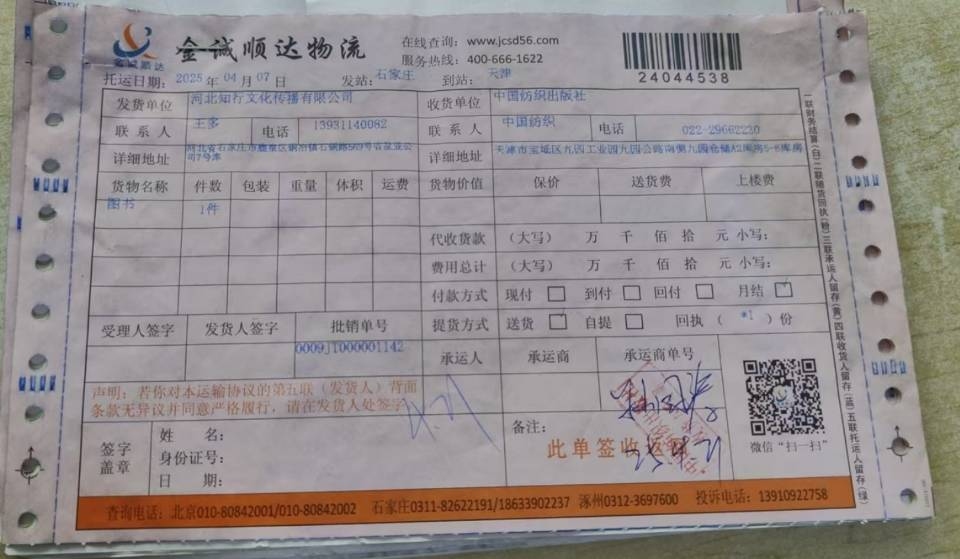 金诚顺达
金诚顺达物流
在线查询：www.jcsd56.com
服务热线：400-666-1622
24044538
托运日期：2025年04月07日 发站：石家庄 到站：天津
发货单位 河北知行文化传播有限公司 收货单位 中国纺织出版社
联系人 王多 电话 13931140082 联系人 中国纺织 电话 022-29662220
详细地址 河北省石家庄市鹿泉区铜冶镇石铜路
公司7号库
详细地址 天津市宝坻区九园工业园九园公路南侧九园仓储A2库房5-8库房
货物名称 件数 包装 重量 体积 运费 货物价值 保价 送货费 上楼费
图书 1件
代收货款 （大写） 万 千 佰 拾 元 小写：
费用总计 （大写） 万 千 佰 拾 元 小写：
付款方式 现付 □ 到付 □ 回付 □ 月结 ☑
受理人签字 发货人签字 批销单号 提货方式 送货 □ 自提 □ 回执（ *1 ）份
0009JT000001142
承运人 承运商 承运商单号
声明：若你对本运输协议的第五联（发货人）背面
条款无异议并同意严格履行，请在发货人处签字
签字
盖章
姓 名：
身份证号：
日 期：
备注：
此单签收
微信“扫一扫”
查询电话：北京010-80842001/010-80842002 石家庄0311-82622191/18633902237 涿州0312-3697600 投诉电话：13910922758
一联财务结算（白）二联随货回执（粉）三联承运人留存（黄）四联收货人留存（蓝）五联托运人留存（绿）